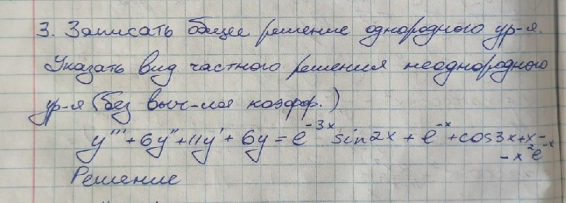 3. Записать общее решение однородного ур-я.
Указать вид частного решения неоднородного
ур-я (без выч-ия коэфф.)
y''' + 6y'' + 11y' + 6y = e^{-3x} sin2x + e^{-x} + cos3x + x -
- x^2 e^{-x}
Решение